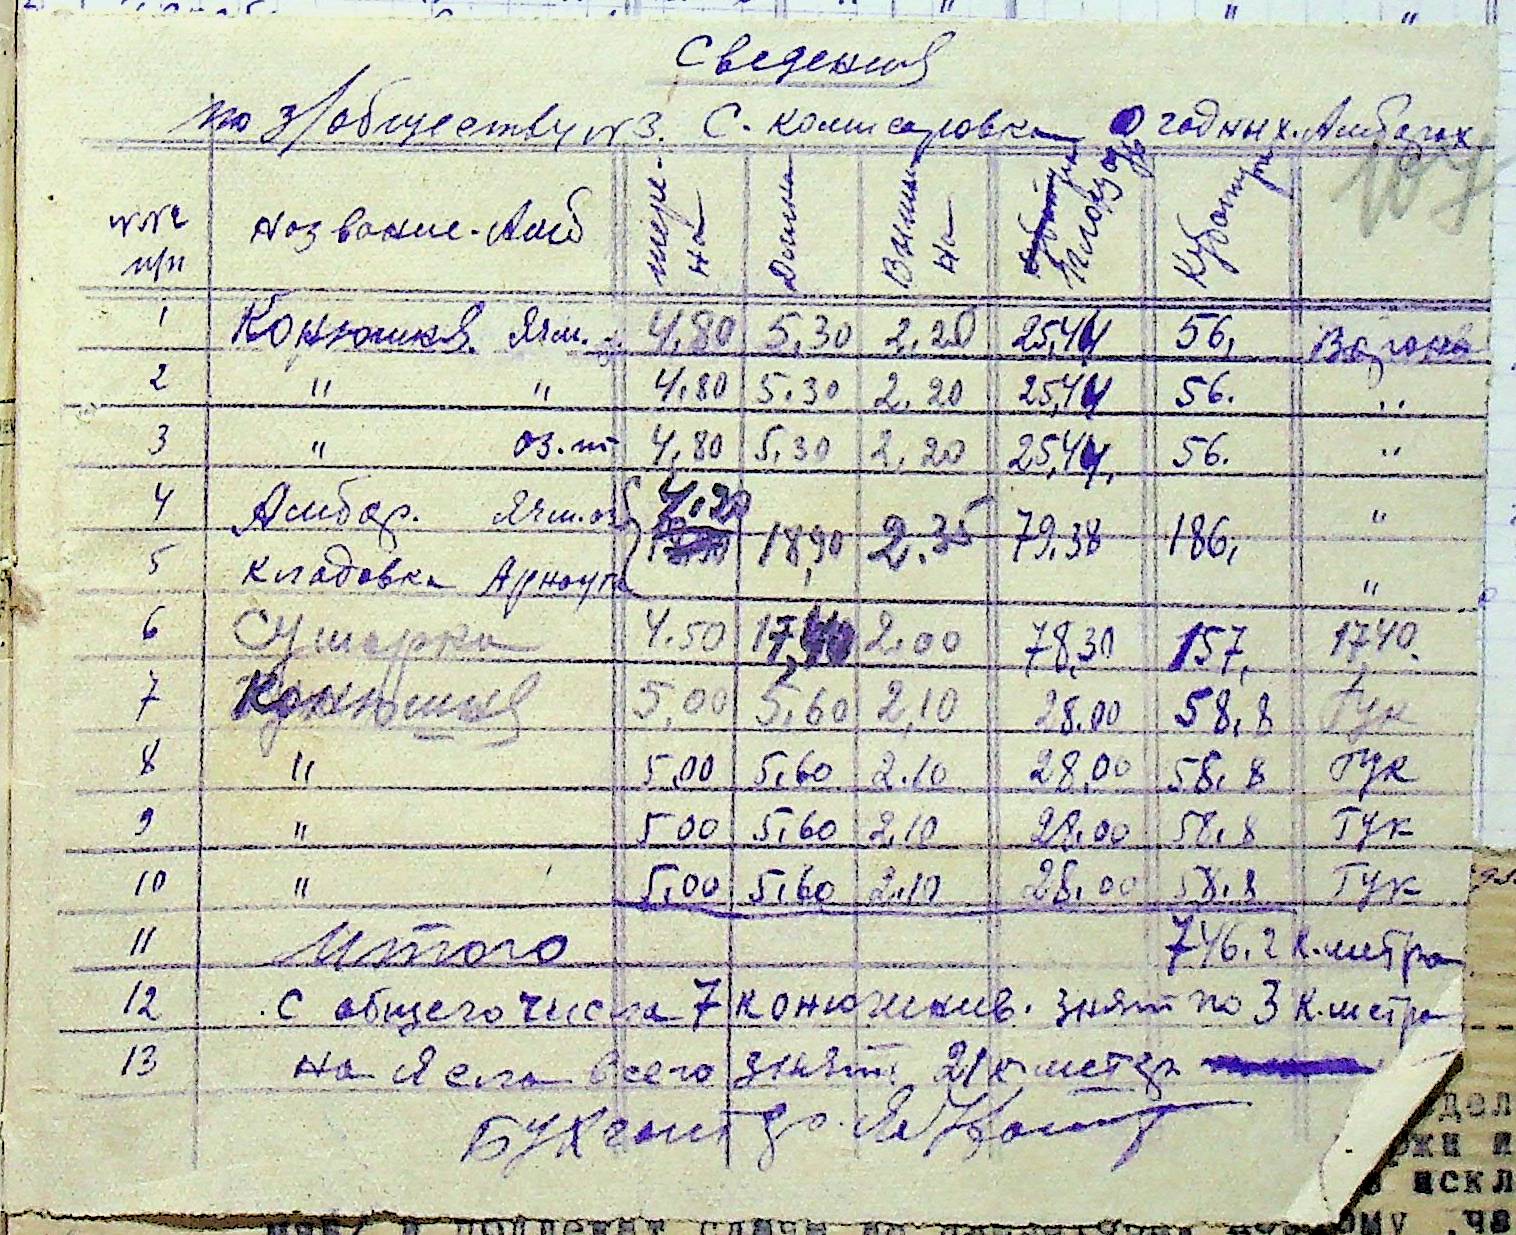 Сведения
по з/обществу №3. С. комисаровка О годных. Амбарах
107
№№ п/п название. Амб шири-на Длина Вышина Площадь Кубатура
1 Конюшня. Ячм. 4,80 5,30 2,20 25,44 56,
2 " " 4,80 5.30 2.20 25,44 56. "
3 " оз.п 4,80 5,30 2.20 25,44, 56. "
4 Амбар. Ячм.оз 4,20 18,90 2.35 79,38 186, "
5 кладовка Арноутка "
6 Сушарка 4.50 17,40 2.00 78,30 157, 17,40.
7 Конюшня 5,00 5,60 2,10 28.00 58,8 Гук
8 " 5,00 5,60 2.10 28,00 58,8 Гук
9 " 5,00 5,60 2,10 28,00 58,8 Гук
10 " 5,00 5,60 2,10 28,00 58,8 Гук
11 Итого 746.2 к.метра
12 С общего числа 7 конюшнив. знят по 3 к.метра
13 на Ясла всего знят 21 к метр
Бухгалтер